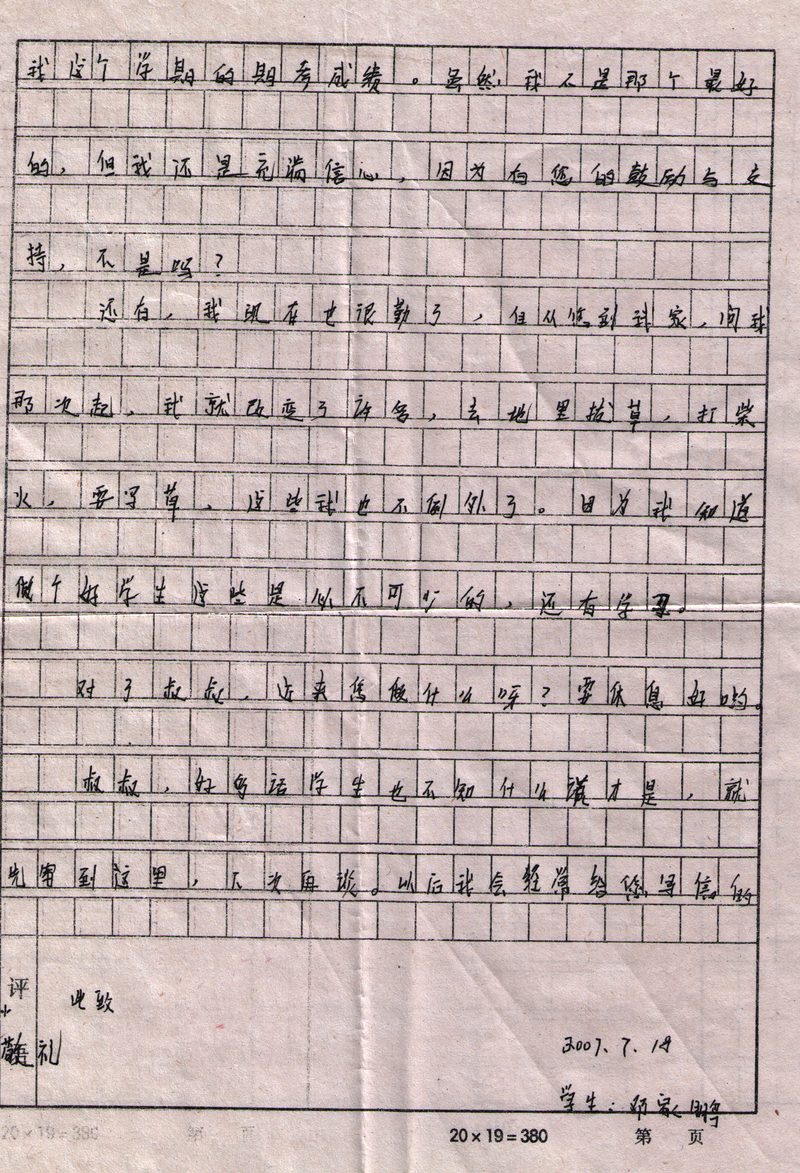 我这个学期的期考成绩。虽然我不是那个最好
的，但我还是充满信心，因为有您的鼓励与支
持，不是吗？
还有，我现在也很勤了，但从您到我家，问我
那次起，我就改变了许多，去地里拔草，打柴
火，要写草，这些我也不例外了。因为我知道
做个好学生这些是必不可少的，还有学习。
对了叔叔，近来您做什么呀？要休息好哟。
叔叔，好多话学生也不知什么讲才是，就
先写到这里，下次再谈。以后我会经常给您写信的
评
此致
敬 礼
2007.7.18
学生：邓家鹏
20×19=380 第 页 20×19=380 第 页